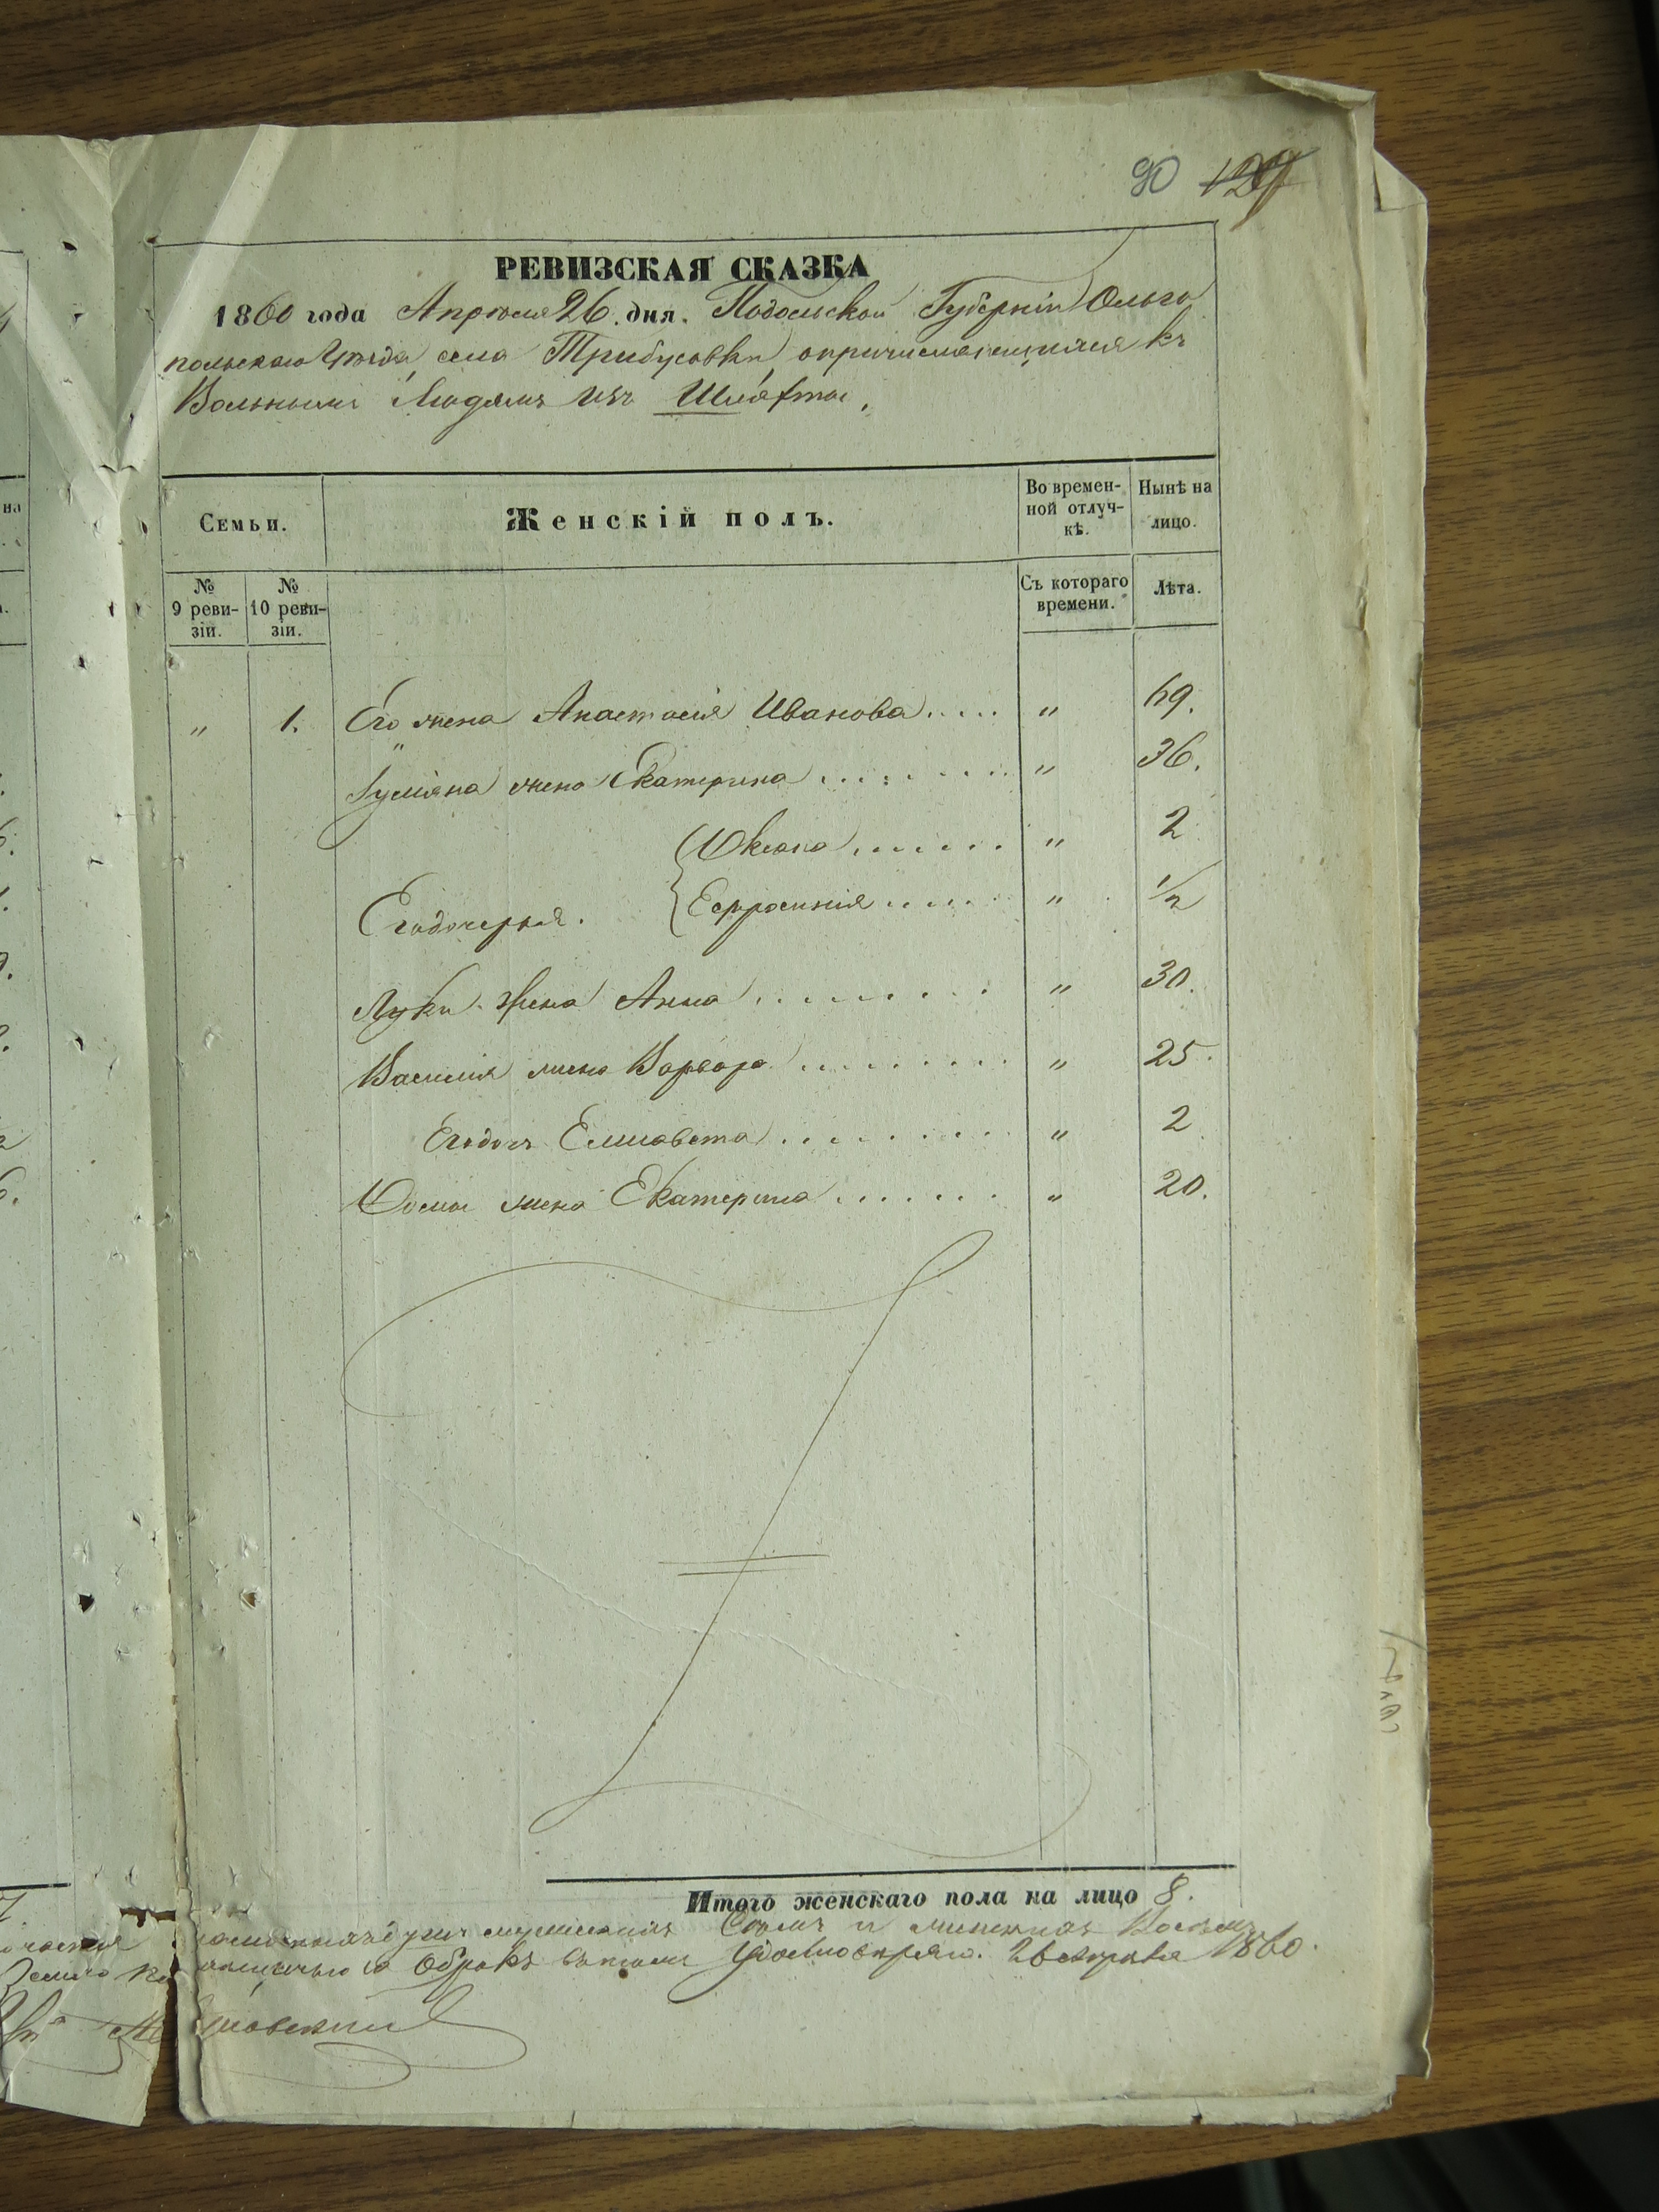 90 127
РЕВИЗСКАЯ СКАЗКА
1860 года Апрѣля 26. дня. Подольской Губерніи Ольго
польскаго Уѣзда села Трибусовки о причисляющихся къ
Вольнымъ Людямъ изъ Шляхты.
Семьи.
Женскій полъ.
Во времен-
ной отлуч-
кѣ.
Нынѣ на
лицо.
№
9 реви-
зіи.
№
10 реви-
зіи.
Съ котораго
времени.
Лѣта.
" 1. Его жена Анастасія Иванова..... " 69.
жена Екатерина ......... " 36.
Юліана ....... " 2
Его дочерья. Ефросинія ...... " 1/2
Луки жена Анна ........ " 30.
Василія жена Варвара ......... " 25.
Его дочь Елисавета ......... " 2
жена Екатерина ....... " 20.
Итого женскаго пола на лицо 8.
душъ мужеска Семь и женска Восемь
Оброкъ удостовѣряю. 26 апрѣля 1860.